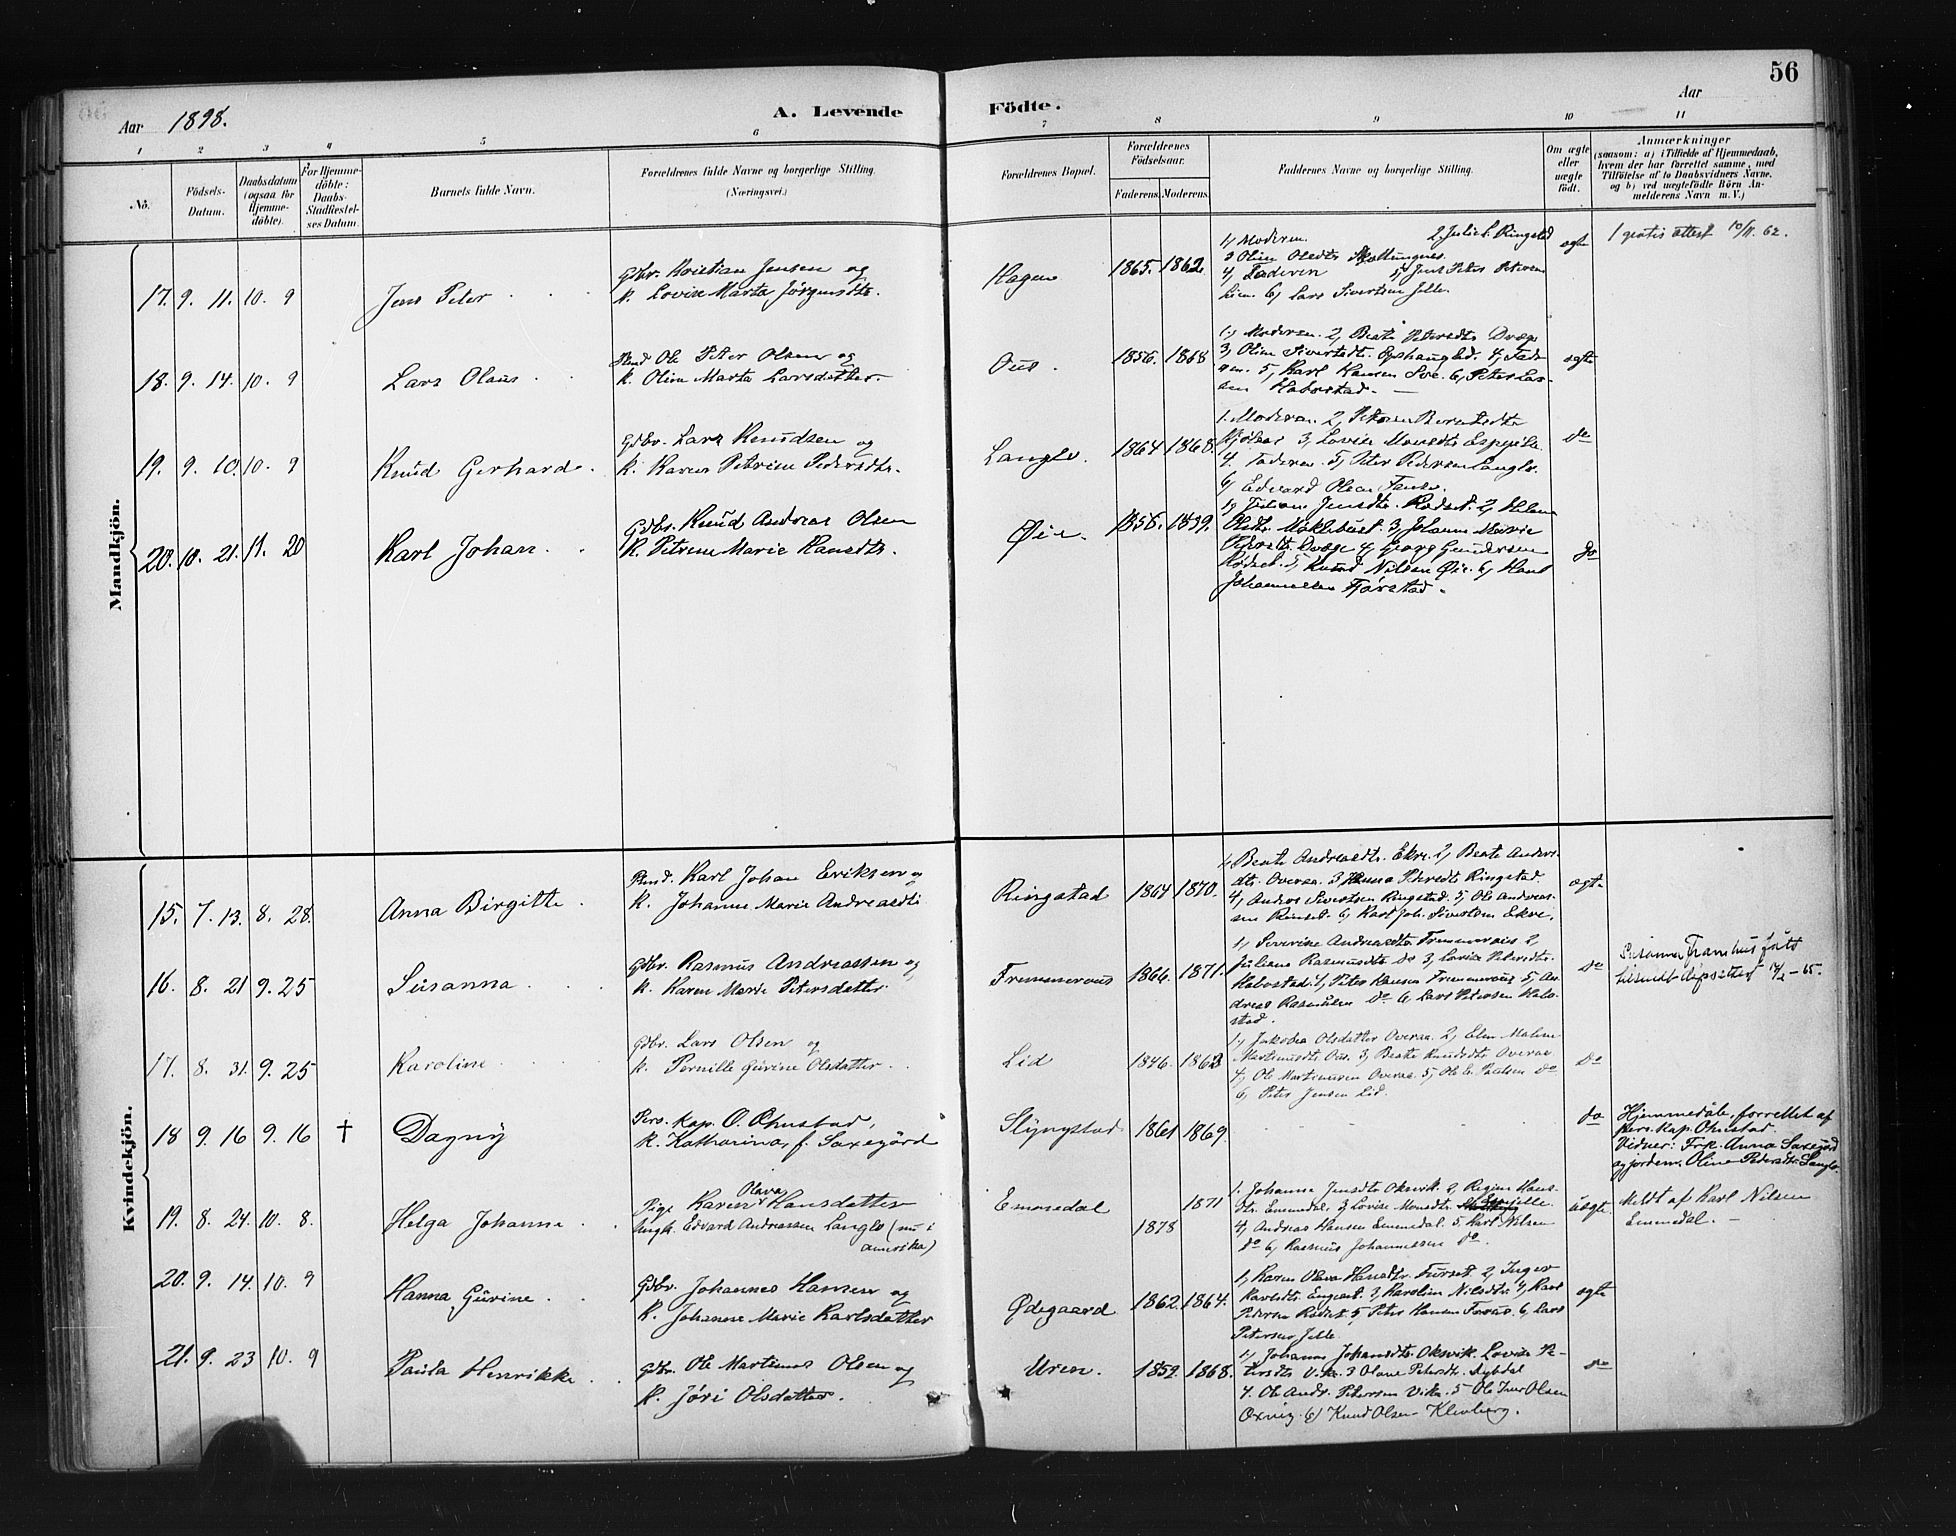 56
Aar 1898.
A. Levende Födte.
Aar
1 2 3 4 5 6 7 8 9 10 11
No.
Födsels-Datum.
Daabsdatum (ogsaa for Hjemme-döbte).
For Hjemme-döbte: Daabs-Stadfæstel-ses Datum.
Barnets fulde Navn.
Forældrenes fulde Navne og borgerlige Stilling.
(Næringsvei.)
Forældrenes Bopæl.
Forældrenes Födselsaar.
Faderens. Moderens.
Faddernes Navne og borgerlige Stilling.
Om ægte eller uægte födt.
Anmærkninger
(saasom: a) i Tilfælde af Hjemmedaab, hvem der har forrettet samme, med Tilföielse af to Daabsvidners Navne, og b) ved uægtefödte Börn An-melderens Navn m. V.)
Mandkjön.
17. 9. 11. 10. 9
Jens Peter
Gdbr. Kristian Jensen og
k. Lovise Marta Jörgensdtr.
Hagen
1865. 1862.
1, Moderen. 2, Julie L. Ringstad
4, Faderen 5, Jens Peter Petersen
6, Lars Sivertsen Jelle.
ægte
1 gratis attest 10/11. 62.
18. 9. 14. 10. 9
Lars Olaus
Ole Peter Olsen og
k. Oline Marta Larsdatter.
Ous
1856. 1868
1, Moderen. 2, Beate Petersdtr Dræge
3, Oline Sivertsdt. Opshaugled. 4, Fade-
ren. 5, Karl Hansen Sve. 6, Peter Lar-
sen Habostad.
ægte
19. 9. 10. 10. 9
Knud Gerhard
Gdbr. Lars Knudsen og
k. Karen Petrine Pedersdtr.
Langlo.
1864 1868.
1. Moderen. 2, Petrine Berntsdtr
3, Lovise Monsdtr Espejelle
4. Faderen. 5, Peter Pedersen Langlo.
6, Edvard Olsen
do
20. 10. 21. 11. 20
Karl Johan
Gdbr. Knud Andreas Olsen
k. Petrine Marie Hansdtr.
Øie.
1856. 1859.
Jensdtr. Rødset. 2,
Olsdtr. Maklebust. 3, Johanne Marie
Pedersdtr. Dræge 4, Georg Gundersen
Rødset. 5, Knud Nilsen Øie. 6, Hans
Johannessen Fjørstad.
do
Kvindekjön.
15. 7. 13. 8. 28.
Anna Birgitte
Karl Johan Eriksen og
k. Johanne Marie Andreasdtr
Ringstad
1864 1870.
1, Beate Andreasdtr. Ekre. 2, Beate Anders-
dtr. Overaa. 3, Petersdtr Ringstad
4, Andreas Sivertsen Ringstad. 5, Ole Andreas-
sen 6, Karl Joh. Sivertsen Ekre.
ægte
16. 8. 21 9. 25
Susanna
Gdbr. Rasmus Andreassen og
k. Karen Marie Petersdatter
Fremmerous
1866. 1871.
1, Severine Andreasdtr Fremmerous 2,
Juliane Rasmusdtr do 3, Lovise Petersdtr.
Habostad. 4, Peter Hansen Fremmerous 5, An-
dreas Rasmussen do 6, Lars Petersen Habo-
stad.
do
Susanna Framhus fått
17. 8. 31. 9. 25
Karoline
Gdbr. Lars Olsen og
k. Pernille Gurine Olsdatter
Lid
1846. 1863
1, Jakobea Olsdatter Overaa. 2, Elen Maline
Martinusdtr. Ous. 3, Beate Knudsdtr Overaa
4, Ole Martinussen Overaa. 5, Ole E. Paulsen do
6, Peter Jensen Lid.
do
18 9. 16 9. 16 †
Dagny
Pers. kap. O. Ohnstad,
k. Katharina, f. Saxegård
Slyngstad
1861 1869
do
Hjemmedåb, forrettet af
Pers. kap. Ohnstad.
Vidner: Frk. Anna Saxegård
og jordem. Oline Pedersdtr Langlo.
19. 8. 24. 10. 8.
Helga Johanne
Pige Karen Olava Hansdatter
Ungk. Edvard Andreassen Langlo (nu i
Amerika)
Emmedal
1871
1878
1. Johanne Jensdtr. Oksvik. 2, Regine Hans-
dtr. Emmedal. 3, Lovise Monsdtr. Espejelle
4, Andreas Hansen Emmedal. 5. Karl Nilsen
do 6, Rasmus Johannessen do.
uægte
Meldt af Karl Nilsen
Emmedal.
20. 9. 14. 10. 9
Hanna Gurine
Gdbr. Johannes Hansen og
k. Johanne Marie Karlsdatter
Ødegaard
1862. 1864.
1, Karen Olava Hansdtr. Furset. 2, Inger
Karlsdtr. Engeset. 3, Karoline Nilsdtr. 4, Karl
Pedersen Rødset. 5, Peter Hansen 6, Lars
Petersen Jelle
ægte
21. 9. 23 10. 9
Paula Henrikke
Gdbr. Ole Martinus Olsen og
k. Jøri Olsdatter.
Uren.
1852. 1868.
1, Johanne Johansdtr. Oksvik. Lovise Pe-
tersdtr Vika. 3 Oline Petersdtr. Nybdal
4. Ole Andr. Petersen Vika. 5 Ole Iver Olsen
6) Knud Olsen Kleiberg.
do